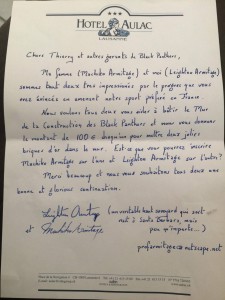 HOTEL AULAC
LAUSANNE
Chers Thierry et autres gérants de Black Panthers,
Ma femme (Machiko Armitage) et moi (Leighton Armitage)
sommes tout deux très impressionnés par le progrès que vous
avez en amenant notre sport préféré en France.
Nous voulons tous deux vous aider à bâtir le Mur
de la Construction des Black Panthers et nous vous donnons
le montant de 100 € chaqu'un pour mettre deux jolies
briques d'or dans le mur. Est-ce que vous pourriez inscrire
Machiko Armitage sur l'une et Leighton Armitage sur l'autre?
Merci beaucoup et nous vous souhaitons tous deux une
bonne et glorieuse continuation.
Leighton Armitage
et Machiko Armitage
(un véritable haut savoyard qui s'est
né à Santa Barbara, mais
peu m'importe...)
profarmitage@netscape.net